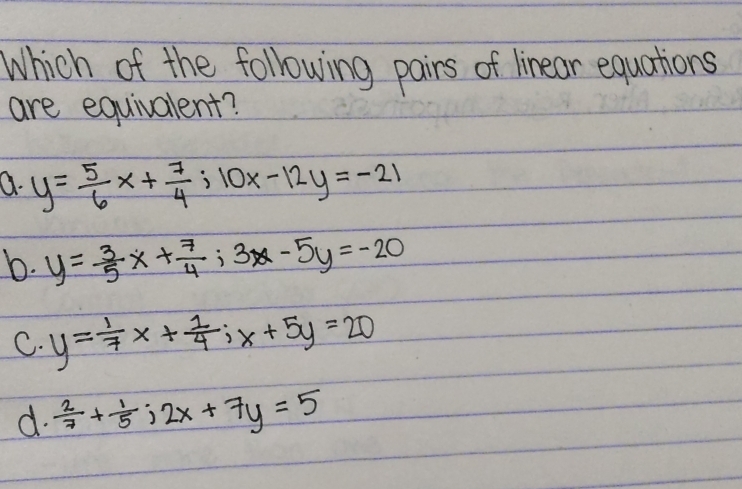 Which of the following pairs of linear equations
are equivalent?
a. y = 5/6 x + 7/4 ; 10x - 12y = -21
b. y = 3/5 x + 7/4 ; 3x - 5y = -20
c. y = 1/7 x + 1/4 ; x + 5y = 20
d. 2/7 + 1/5 ; 2x + 7y = 5